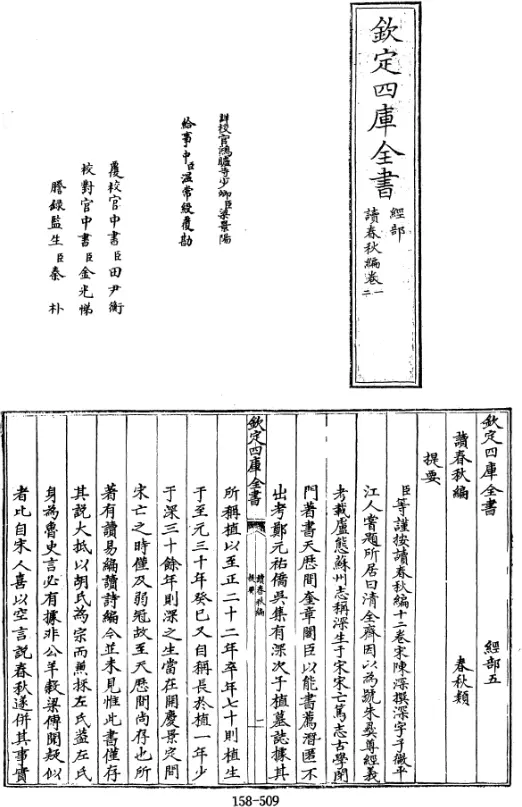 欽定四庫全書
經部
讀春秋編卷一
二
詳校官鴻臚寺少卿臣梁景陽
給事中臣溫常綬覆勘
覆校官中書臣田尹衡
校對官中書臣金光悌
謄錄監生臣秦朴
欽定四庫全書 經部五
讀春秋編 春秋類
提要
臣等謹按讀春秋編十二卷宋陳深撰深字子微平
江人嘗題所居曰清全齋因以為號朱彞尊經義
考載盧熊蘇州志稱深生于宋宋亡篤志古學閉
門著書天歴間奎章閣臣以能書薦潛匿不
出考鄭元祐僑吳集有深次子植墓誌據其
欽定四庫全書
讀春秋編
提要
一
所稱植以至正二十二年卒年七十則植生
于至元三十年癸巳又自稱長於植一年少
于深三十餘年則深之生當在開慶景定間
宋亡之時僅及弱冠故至天歴間尚存也所
著有讀易編讀詩編今並未見惟此書僅存
其說大抵以胡氏為宗而兼採左氏蓋左氏
身為魯史言必有據非公羊穀梁傳聞疑似
者比自宋人喜以空言說春秋遂併其事實
158-509